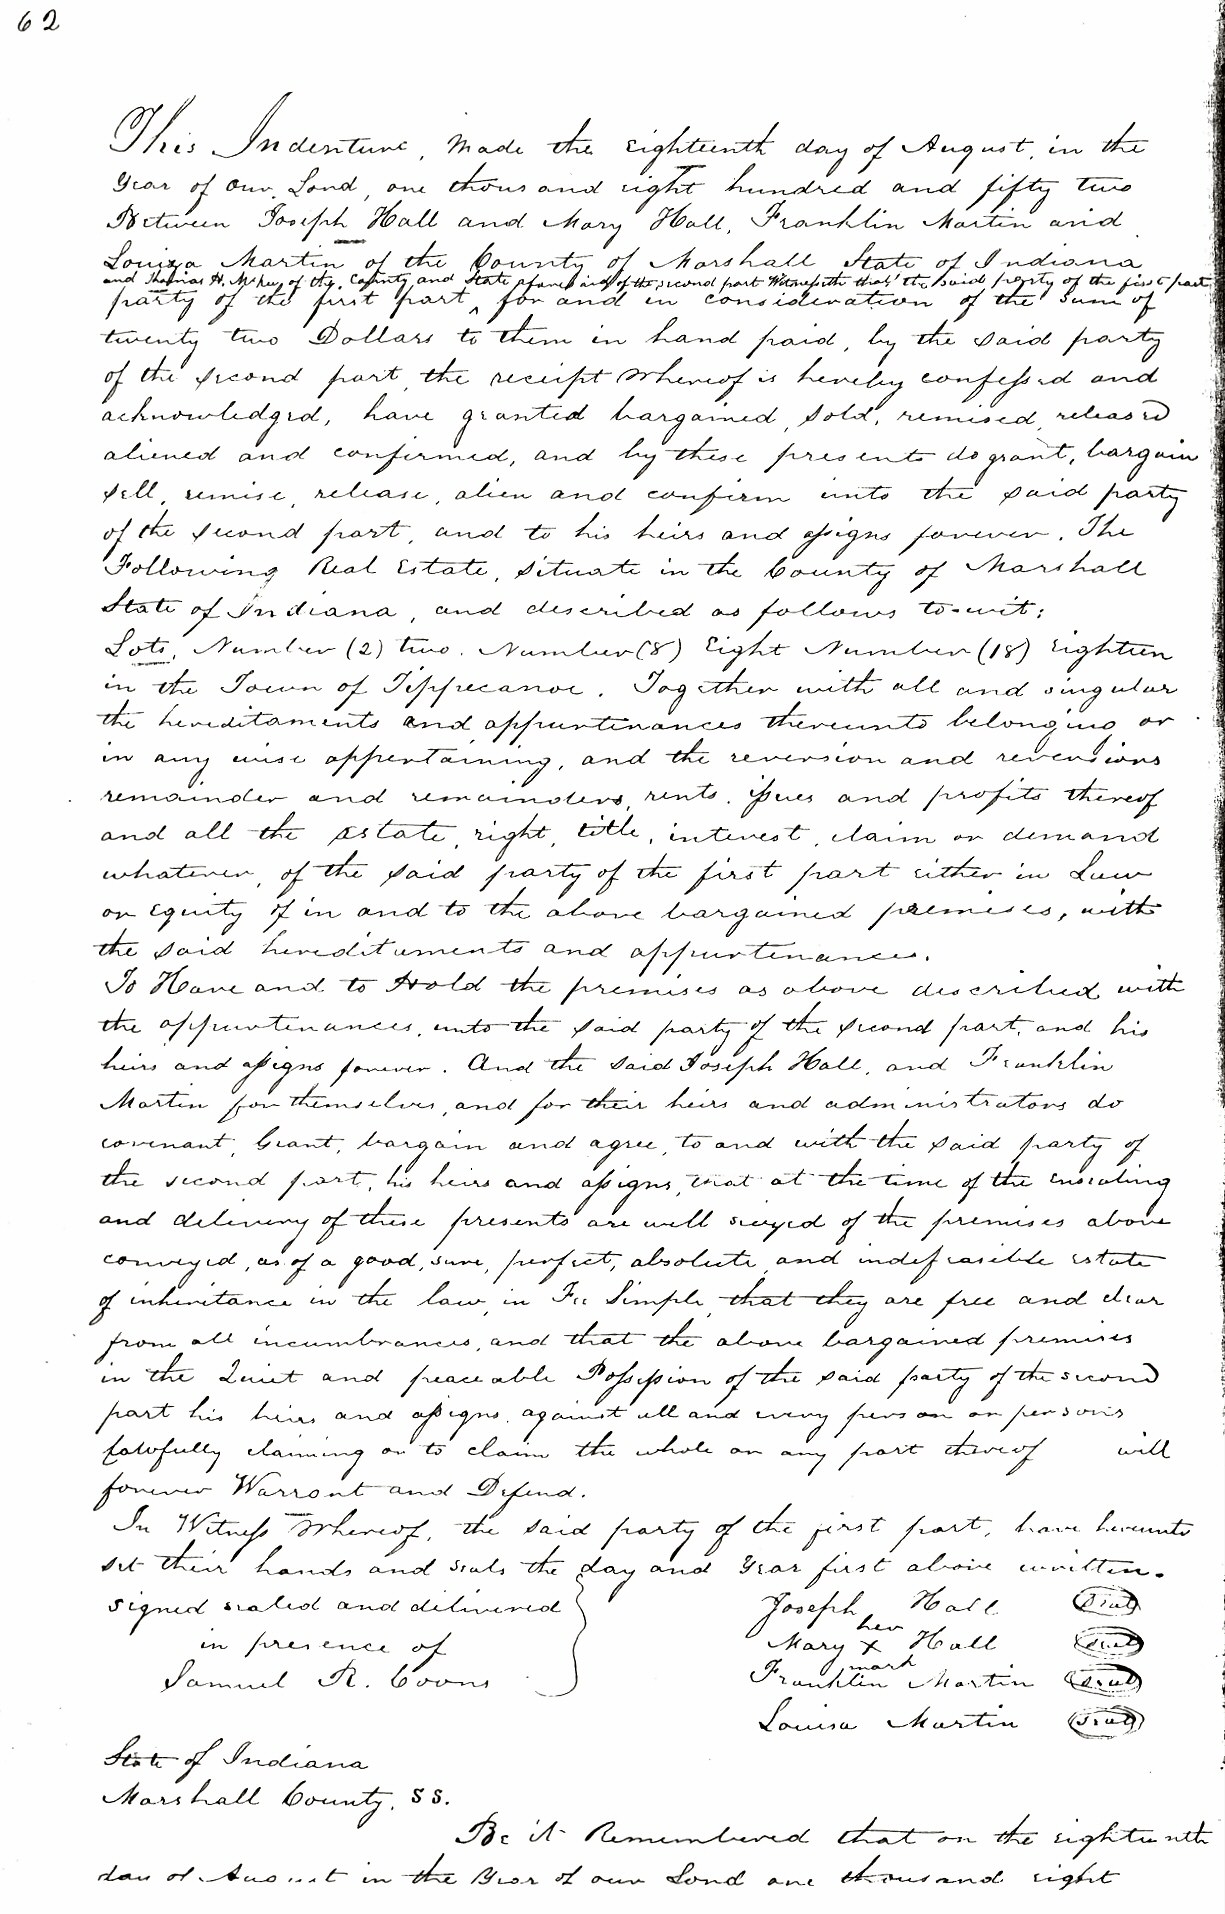 62
This Indenture, Made the Eighteenth day of August, in the
Year of Our Lord, one thousand eight hundred and fifty two
Between Joseph Hall and Mary Hall, Franklin Martin and
Louiza Martin of the County of Marshall State of Indiana
and Thomas H. of the County and State aforesaid of the second part Witnesseth that the said party of the first part
party of the first part, for and in consideration of the sum of
twenty two Dollars to them in hand paid, by the said party
of the second part, the receipt whereof is hereby confessed and
acknowledged, have granted bargained, sold, remised, released
aliened and confirmed, and by these presents do grant, bargain
sell, remise, release, alien and confirm unto the said party
of the second part, and to his heirs and assigns forever. The
Following Real Estate, situate in the County of Marshall
State of Indiana, and described as follows to-wit:
Lots, Number (2) two. Number (8) Eight Number (18) Eighteen
in the Town of Tippecanoe. Together with all and singular
the hereditaments and appurtenances thereunto belonging or
in any wise appertaining, and the reversion and reversions
remainder and remainders, rents, issues and profits thereof
and all the estate, right, title, interest, claim or demand
whatever, of the said party of the first part either in Law
or Equity of in and to the above bargained premises, with
the said heredituments and appurtenances.
To Have and to Hold the premises as above described with
the appurtenances, unto the said party of the second part, and his
heirs and assigns forever. And the said Joseph Hall, and Franklin
Martin for themselves, and for their heirs and administrators do
covenant, Grant, bargain and agree, to and with the said party of
the second part, his heirs and assigns, that at the time of the ensealing
and delivery of these presents are well seized of the premises above
conveyed, as of a good, sure, perfect, absolute, and indefeasible estate
of inheritance in the law, in Fee Simple, that they are free and clear
from all incumbrances, and that the above bargained premises
in the Quiet and peaceable Possession of the said party of the second
part his heirs and assigns, against all and every person or persons
lawfully claiming or to claim the whole or any part thereof will
forever Warrant and Defend.
In Witness Whereof, the said party of the first part, have hereunto
set their hands and seals the day and Year first above written.
signed sealed and delivered
in presence of
Samuel R. Coons
Joseph Hall Seal
her
Mary X Hall Seal
mark
Franklin Martin Seal
Louisa Martin Seal
State of Indiana
Marshall County, SS.
Be it Remembered that on the eighteenth
day of August in the Year of our Lord one thousand eight